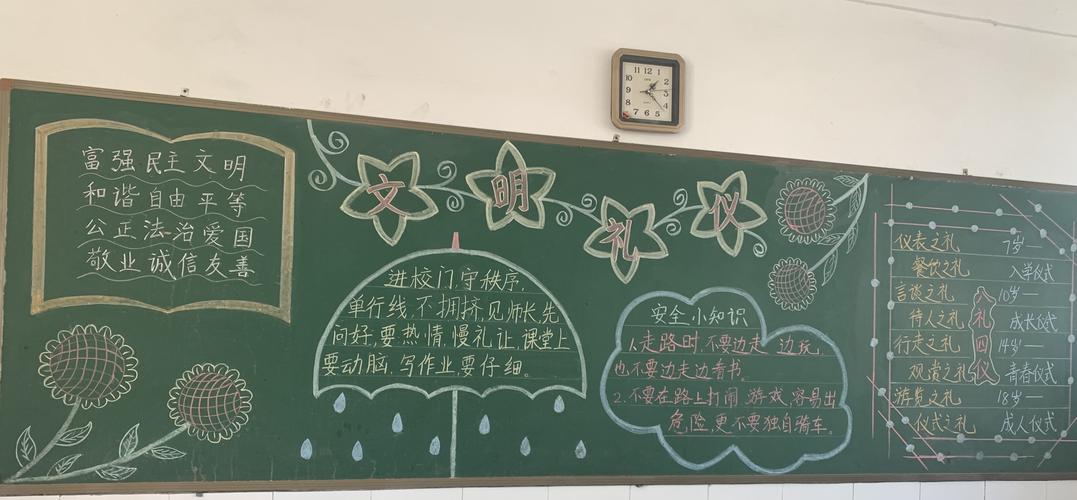 富强民主文明
和谐自由平等
公正法治爱国
敬业诚信友善
文明礼仪
进校门,守秩序,
单行线,不拥挤,见师长,先
问好,要热情,慢礼让,课堂上
要动脑,写作业,要仔细。
安全小知识
1.走路时,不要边走边玩,
也不要边走边看书。
2.不要在路上打闹、游戏,容易出
危险,更不要独自骑车。
仪表之礼
餐饮之礼
言谈之礼
待人之礼
行走之礼
观赏之礼
游览之礼
仪式之礼
礼四仪
7岁—
入学仪式
10岁—
成长仪式
14岁—
青春仪式
18岁—
成人仪式
12
1
2
3
4
5
6
7
8
9
10
11